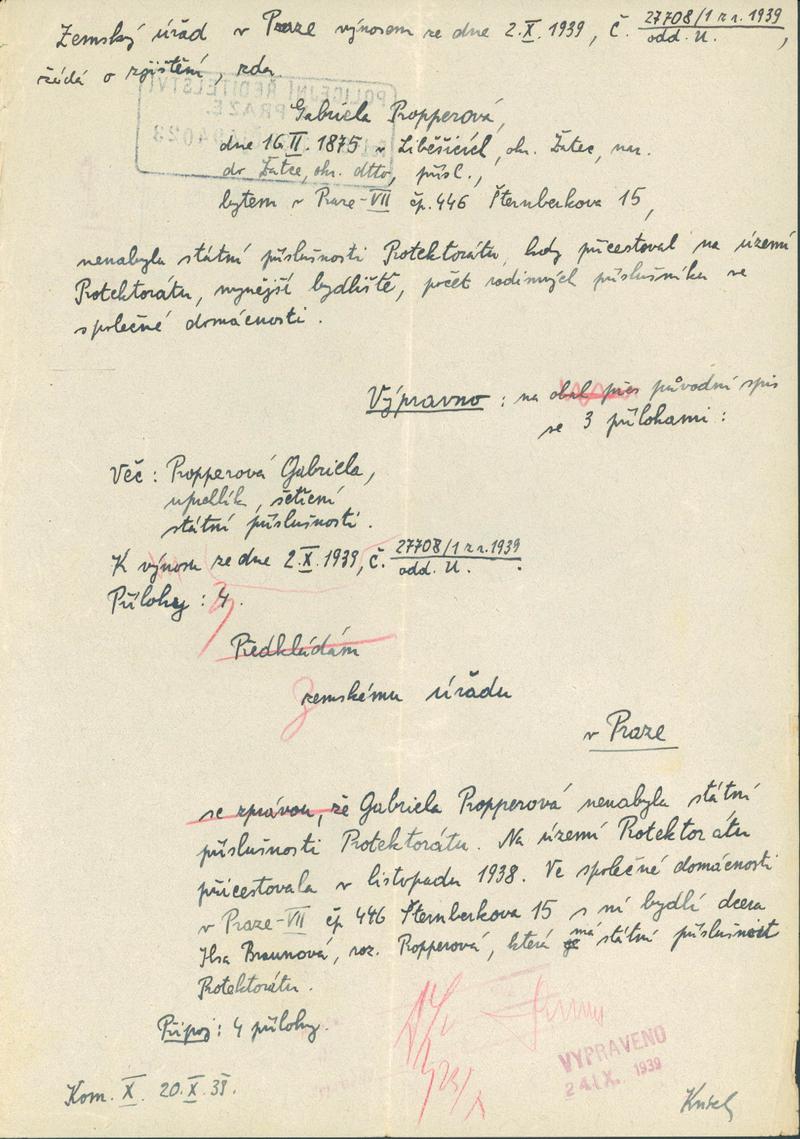 Zemský úřad v Praze výnosem ze dne 2.X.1939, č. 27708/1 z r. 1939
odd. U. ,
žádá o zjištění, zda
POLICEJNÍ ŘEDITELSTVÍ
PRAZE.
Gabriela Propperová,
dne 16.II.1875 v Liběšicích, okr. Žatec, nar.
do Žatce, okr. dtto, přísl.,
bytem v Praze-VII čp. 446 Šternberkova 15,
nenabyla státní příslušnosti Protektorátu, kdy přicestoval na území
Protektorátu, nynější bydliště, počet rodinných příslušníků ve
společné domácnosti.
Výpravno: na obal přes původní spis
se 3 přílohami:
Věc: Propperová Gabriela,
uprchlík, šetření
státní příslušnosti.
K výnosu ze dne 2.X.1939, č. 27708/1 z r. 1939
odd. U. .
Přílohy: 4.
Předkládám
zemskému úřadu
v Praze
se zprávou, že Gabriela Propperová nenabyla státní
příslušnosti Protektorátu. Na území Protektorátu
přicestovala v listopadu 1938. Ve společné domácnosti
v Praze-VII čp 446 Šternberkova 15 s ní bydlí dcera
Ilsa Braunová, roz. Propperová, která má státní příslušnost
Protektorátu.
Připoj: 4 přílohy.
VYPRAVENO
24.IX. 1939
Kom. X. 20.X.39.